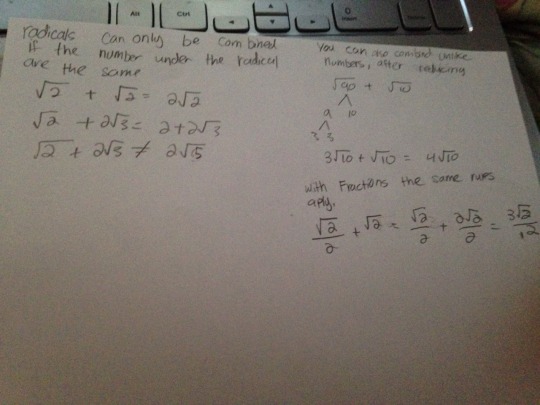 Alt
Ctrl
radicals can only be combined
if the number under the radical
are the same
√2 + √2 = 2√2
√2 + 2√3 = 2+2√3
√2 + 2√3 ≠ 2√5
You can also combind unlike
numbers, after reducing
√90 + √10
9 10
3 3
3√10 + √10 = 4√10
with Fractions the same rules
aply.
√2/2 + √2 = √2/2 + 2√2/2 = 3√2/2